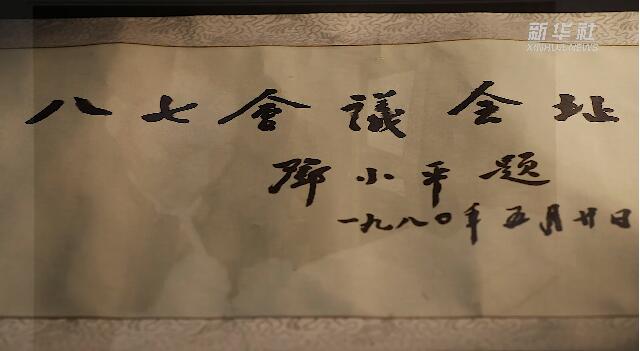 新华社
XINHUA NEWS
八七會議会址
鄧小平题
一九八〇年五月廿日